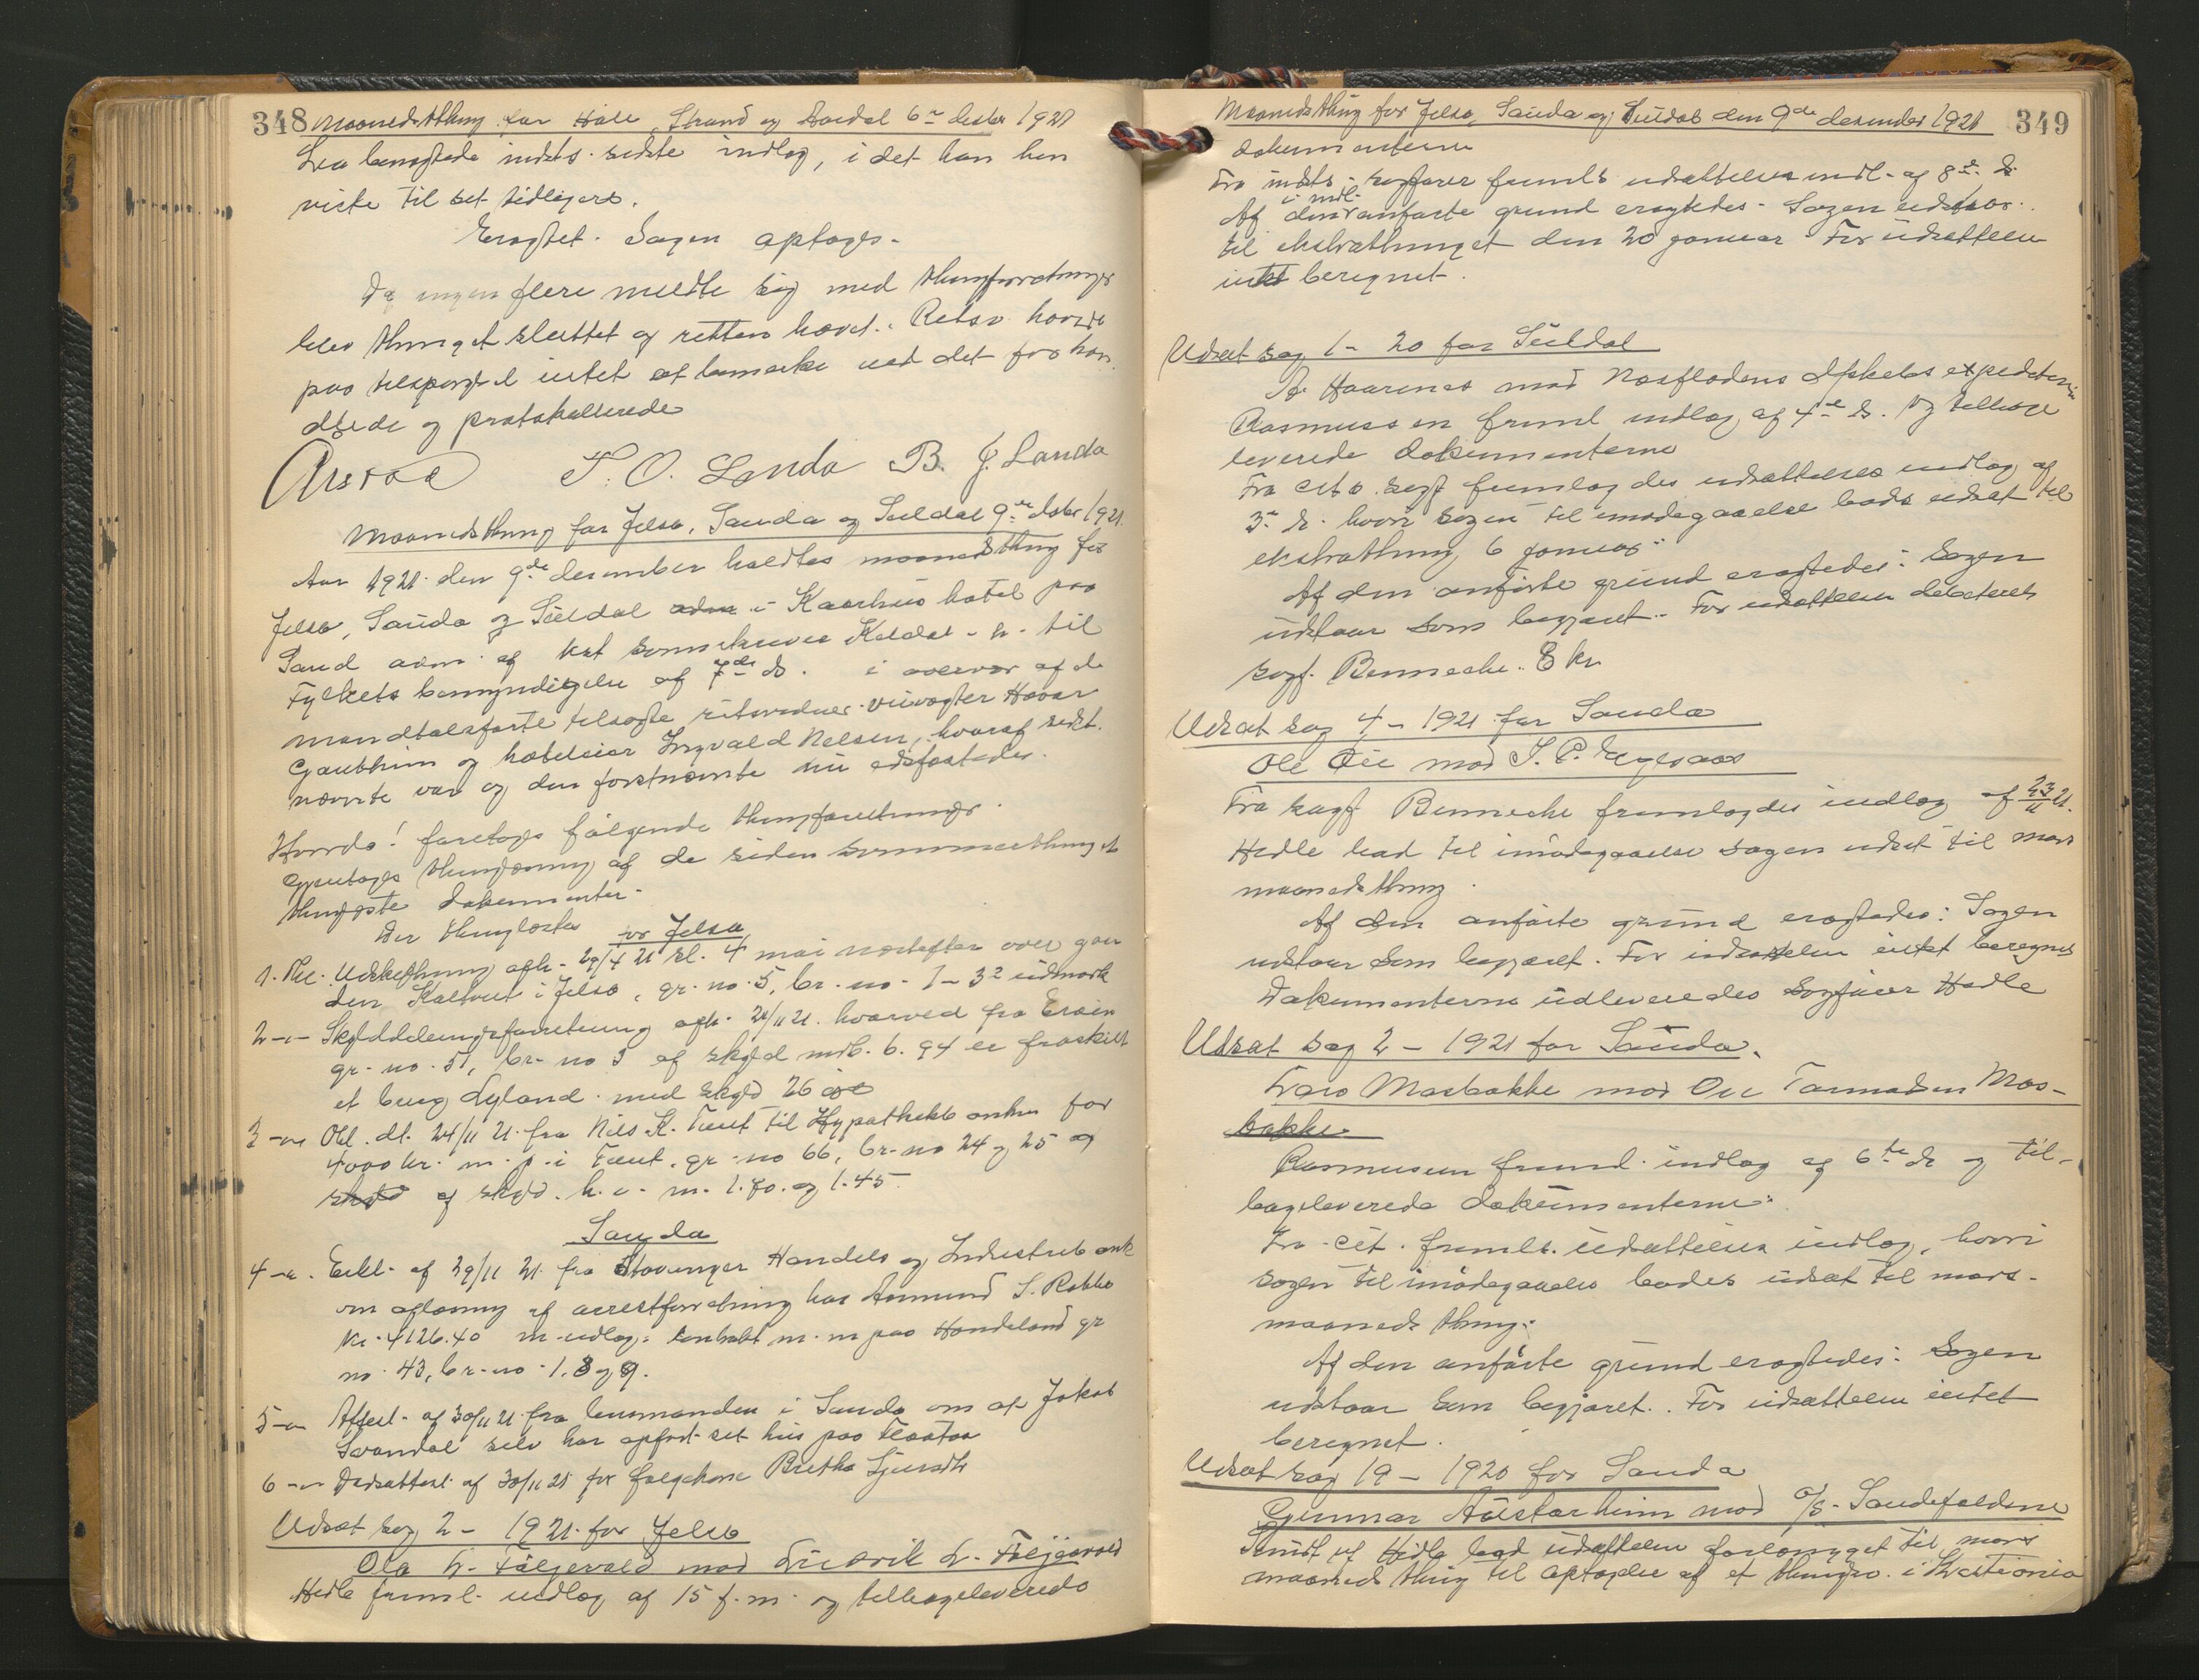 348 Maanedsthing for Høle, Strand og Aardal 6te desbr 1921
Lea benegtede indsts sidste indlæg, i det han hen
viste til set tidligere.
Eragtet: Sagen optages.
Da ingen flere meldte sig med thingforretninger
blev thinget sluttet og retten hævet. Retsv. havde
paa tilspørgsel intet at bemærke ved det forhan
dlede og protokollerede
T. O. Landa B. J. Landa
Maanedsthing for Jelsø, Sauda og Suldal 9de dsbr 1921.
Aar 1921 den 9de desember holdtes maanedsthing for
Jelsø, Sauda og Suldal i Kaarhus hotel paa
Sand adm. af kst sorenskriver Koldal h. til
Fylkets bemyndigelse af 7de ds. i overvær af de
mandtalsførte tilsagte retsvidner veivogter Haavar
Gautheim og hoteleier Ingvald Nelsen, hvoraf sidst.
nævnte var og den førstnævnte nu edsfæstedes.
Hvorda! foretoges følgende thingforretninger.
Gjentoges thinglæsning af de siden sommerthinget
thinglæste dokumenter.
Der thinglæstes
for Jelsø
1. Nr. Udskiftning afh. 29/4 21 sl. 4 mai næstefter over gaar
den Kaltveit i Jelsø, gr. no. 5, br. no. 1-32 udmark
2 -"- Skylddelingsforretning afh. 21/11 21. hvorved fra Eroin
gr. no. 51, br. no 3 af skyld mrk. 6.94 er fraskilt
et brug Lyland med skyld 26 øre
3 -"- Obl. dt. 24/11 21 fra Nils K. Tveit til Hypothekbanken for
4000 kr. m. p. i Tveit, gr. no 66, br. no 24 og 25 og
skyld af skyld. h. v. m. 1.70. og 1.45.
Sauda
4 -"-. Erkl. af 29/11 21 fra Stavanger Handels og Industribank
om aflæsning af arrestforretning hos Aamund S. Rabbe
kr. 4126.40 m. udlæg: kontrakt m. m paa Handeland gr
no. 43, br. no. 1, 8 og 9.
5 -"- Attest. af 30/11 21 fra lensmanden i Sauda om at Jakob
Svandal selv har opført set hus paa Fløgtaa
6 -"- Dødsattest af 30/11 21 for folgekone Bretha Gjuvslid
Udsat sag 2 - 1921 for Jelsø
Ola L. Følgerøld mod Ludvik L. Følgerøld
Hidle freml. indlæg af 15 f. m. og tilbageleverede
Maanedsthing for Jelsø, Sauda og Suldal den 9de desember 1921 349
dokumenterne
Fra indsts. sagfører fremls udsættelsesindl. af 8de ds.
Af den i indl. anførte grund eragtedes: Sagen udstaar
til ekstrathinget den 20 januar. For udsættelsen
intet beregnet.
Udsat sag 1 - 20 for Suldal
A. Haarenes mod Næsflodens Dpskbs expeditører
Rasmussen freml indlæg af 4de ds. og tilbage
leverede dokumenterne
Fra cits. sagf fremlagdes udsættelsesindlæg af
3de ds. hvori sagen til imødegaaelse bades udsat til
ekstrathing 6 januar:
Af den anførte grund eragtedes: Sagen
udstaar som begjæret. For udsættelsen debeteres
sagf. Bennecke 8 kr.
Udsat sag 4 - 1921 for Sauda
Ole Øie mod S. P. Eglsaas
Fra sagf Bennecke fremlagdes indlæg af 23/11 21.
Hidle bad til imødegaaelse sagen udsat til mars
maanedsthing.
Af den anførte grund eragtedes: Sagen
udstaar som begjæret. For udsættelsen intet beregnet
Dokumenterne udleveredes Sagfører Hidle
Udsat sag 2 - 1921 for Sauda.
Lars Mosbakke mod Ole Tormodsen Mos-
bakke
Rasmussen freml. indlæg af 6te ds og til-
bageleverede dokumenterne:
Fra cit. fremls. udsættelses indlæg, hvori
sagen til imødegaaelse bades udsat til mars-
maanedsthing:
Af den anførte grund eragtedes: Sagen
udstaar som begjæret. For udsættelsen intet
beregnet.
Udsat sag 19 - 1920 for Sauda
Gunnar Austarheim mod A/S. Saudefaldene
Hidle bad udsættelsen forlænget til mars
maanedsthing til optagelse af et thingsv. i Kristiania